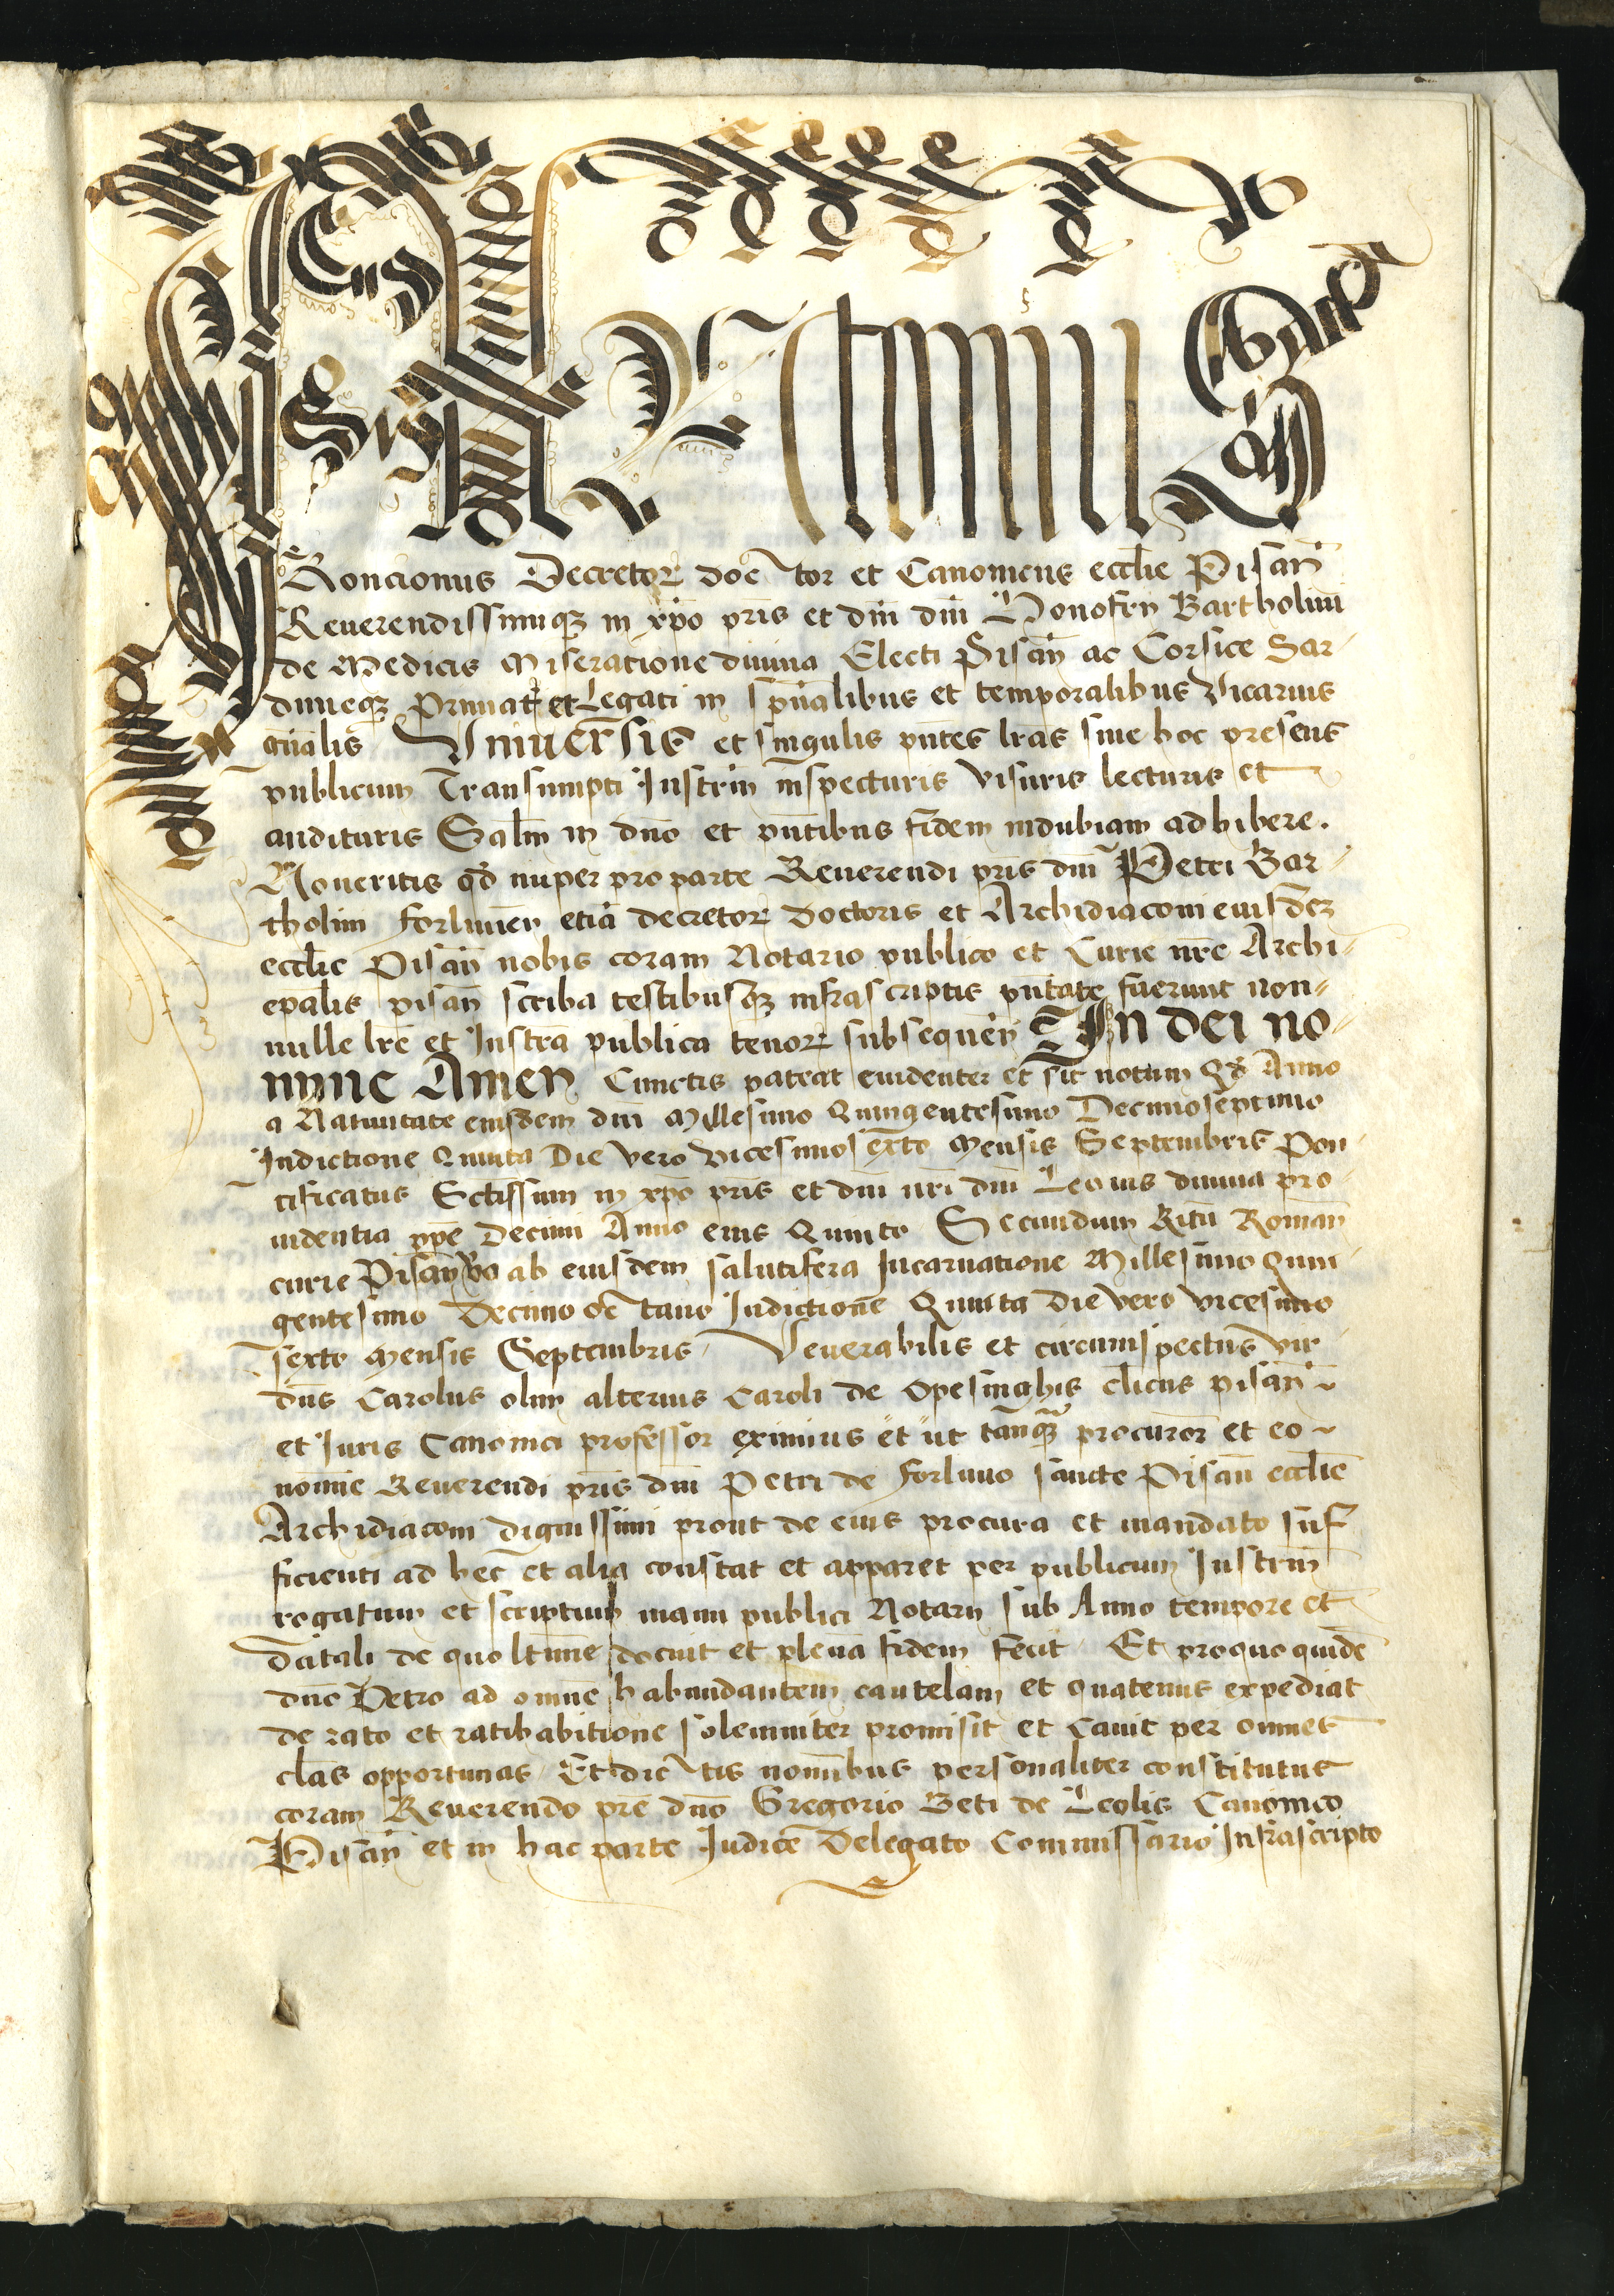 Roncionus Decretoꝝ doctor et Canonicus eccl̄ie Pisan̄
Reuerendissimiqꝫ in xp̄o pr̄is et dn̄i dn̄i Honofrij Bartholini
de Medicis Miseratione diuina Electi Pisan̄ ac Corsice Sar-
dinieqꝫ Primat̄ et Legati in sp̄ualibus et temporalibus Vicarius
gn̄alis Vniuersis et singulis pn̄tes lr̄as siue hoc presens
publicum Transumpti Instrm̄ inspecturis visuris lecturis et
audituris Salt̄m in dn̄o et pn̄tibus fidem indubiam adhibere.
Noueritis qd̄ nuper pro parte Reuerendi pr̄is dn̄i Petri Bar-
tholini forliuien̄ etiā decretoꝝ doctoris et Archidiaconi eiusdeꝫ
eccl̄ie Pisan̄ nobis coram Notario publico et Curie nr̄e Archi-
ep̄alis pisan̄ scriba testibusqꝫ infrascriptis pn̄tate fuerunt non-
nulle lr̄e et Instrā publica tenoꝝ subsequen̄ In dei no-
mine Amen Cunctis pateat euidenter et sit notum Qd̄ Anno
a Natiuitate eiusdem dn̄i Millesimo Quingentesimo Decimoseptimo
Indictione Quinta Die vero vicesimosexto Mensis Septembris Pon
tificatus Sctissimi in xp̄o pr̄is et dn̄i nr̄i dn̄i Leonis diuina pro-
uidentia pp̄e Decimi Anno eius Quinto Secundum Ritū Roman̄
curie Pisan̄ v̊o ab eiusdem salutifera Incarnatione Millesimo Quin-
gentesimo Decimo octauo Indictione Quinta Die vero vicesimo
sexto Mensis Septembris Venerabilis et circumspectus vir
dn̄s Carolus olim alterius Caroli de Opesinghis cl̄icus pisan̄
et Iuris Canonici professor eximius et ut tanqꝫ procuror̄ et eo
nomīe Reuerendi pr̄is dn̄i Petri de forliuio sancte Pisan̄ eccl̄ie
Archidiaconi dignissimi prout de eius procura et mandato suf
ficienti ad hec et alia constat et apparet per publicum Instrm̄
rogatum et scriptum manu publici Notarij sub Anno tempore et
Datali de quo lt̄ime docuit et plenā fidem fecit Et pro quo quidē
dn̄o Petro ad omnē habundantem cautelam et quatenus expediat
de rato et ratihabitione solemniter promisit et Cauit per omnes
cl̄as opportunas Et dictis nomībus personaliter constitutus
coram Reuerendo pr̄e dn̄o Gregorio Beti de Leolis Canonico
Pisan̄ et in hac parte Iudice Delegato Commissario Infrascripto